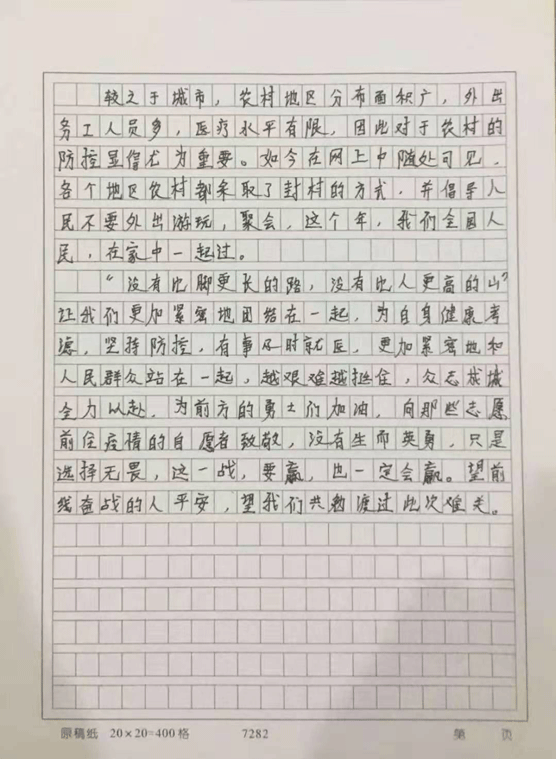 较之于城市，农村地区分布面积广，外出
务工人员多，医疗水平有限，因此对于农村的
防控显得尤为重要。如今在网上中随处可见，
各个地区农村都采取了封村的方式，并倡导人
民不要外出游玩，聚会，这个年，我们全国人
民，在家中一起过。
“没有比脚更长的路，没有比人更高的山”
让我们更加紧密地团结在一起，为自身健康考
虑，坚持防控，有事及时就医，更加紧密地和
人民群众站在一起，越艰难越挺住，众志成城
全力以赴，为前方的勇士们加油，向那些志愿
前往疫情的自愿者致敬，没有生而英勇，只是
选择无畏，这一战，要赢，也一定会赢。望前
线奋战的人平安，望我们共勉渡过此次难关。
原稿纸 20×20=400格 7282 第 页